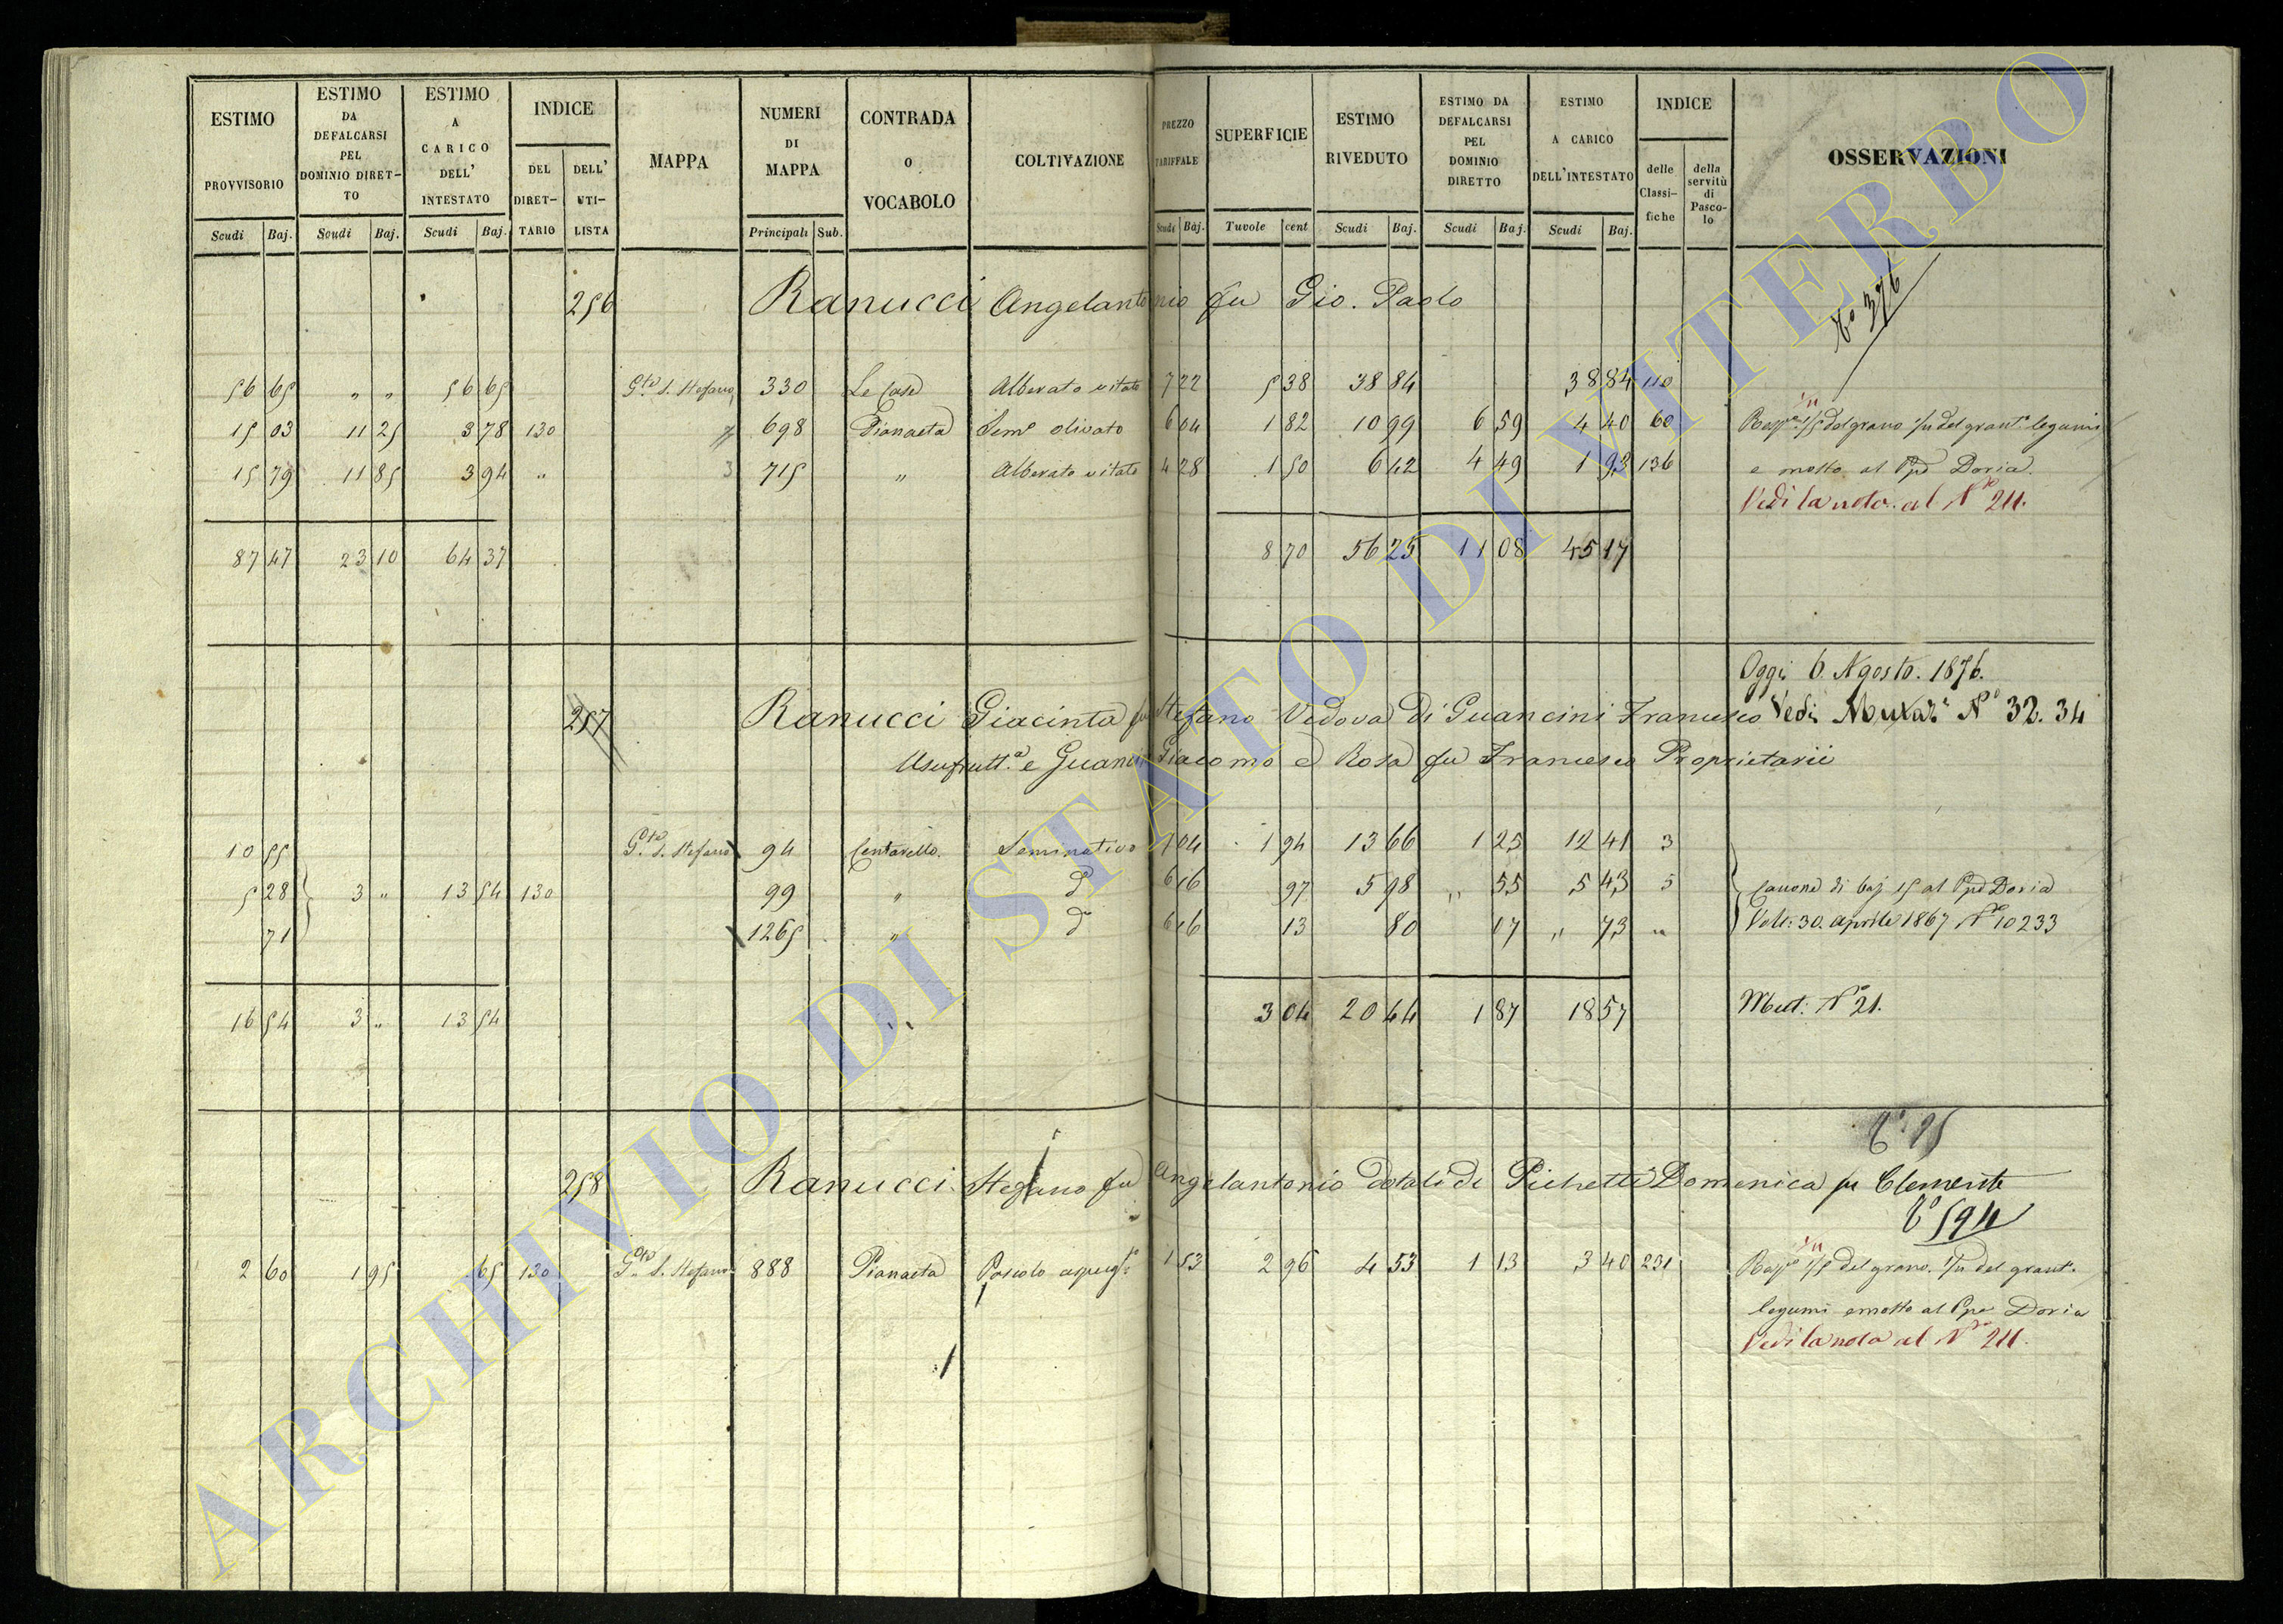 ESTIMO PROVVISORIO Scudi Baj.
ESTIMO DA DEFALCARSI PEL DOMINIO DIRET-TO Scudi Baj.
ESTIMO A CARICO DELL' INTESTATO Scudi Baj.
INDICE DEL DIRET-TARIO DELL' UTI-LISTA
MAPPA
NUMERI DI MAPPA Principali Sub.
CONTRADA O VOCABOLO
COLTIVAZIONE
PREZZO TARIFFALE Scudi Baj.
SUPERFICIE Tavole cent
ESTIMO RIVEDUTO Scudi Baj.
ESTIMO DA DEFALCARSI PEL DOMINIO DIRETTO Scudi Baj.
ESTIMO A CARICO DELL'INTESTATO Scudi Baj.
INDICE delle Classi-fiche della servitù di Pasco-lo
OSSERVAZIONI
256 Ranucci Angelantonio fu Gio. Paolo 376
56 65 " " 56 65 S. Stefano 330 Le Case Alberato vitato 7 22 5 38 38 84 38 84 110
15 03 11 25 3 78 130 " 698 Pianaeta Sem.o olivato 6 04 1 82 10 99 6 59 4 40 60 1/5 del grano 1/11 del grant.o legumi
15 79 11 85 3 94 " 715 " Alberato vitato 4 28 1 50 6 42 4 49 1 93 136 e mosto al Ppe Doria
Vedi la nota al No 211.
87 47 23 10 64 37 8 70 56 25 11 08 45 17
Oggi 6 Agosto. 1876.
257 Ranucci Giacinta fu Stefano Vedova di Guancini Francesco Vedi No 32. 34
Usufrutt.a e Guancini Giacomo e Rosa fu Francesco Proprietarii
10 55 S. Stefano 94 Centarello Seminativo 7 04 1 94 13 66 1 25 12 41 3
5 28 3 " 13 54 130 99 " do 6 16 97 5 98 " 55 5 43 5 Canone di baj 15 al Ppe Doria
71 1265 " do 6 16 13 80 07 " 73 " Volt: 30. aprile 1867 No 10233
16 54 3 " 13 54 3 04 20 44 1 87 18 57 Mut: No 21.
95
258 Ranucci Stefano fu Angelantonio dotali di Pichetti Domenica fu Clemente
594
2 60 1 95 65 130 S. Stefano 888 Pianaeta Pascolo 1 53 2 96 4 53 1 13 3 40 231 1/5 del grano. 1/11 del grant.o
legumi e mosto al Ppe Doria
Vedi la nota al No 211.
ARCHIVIO DI STATO DI VITERBO